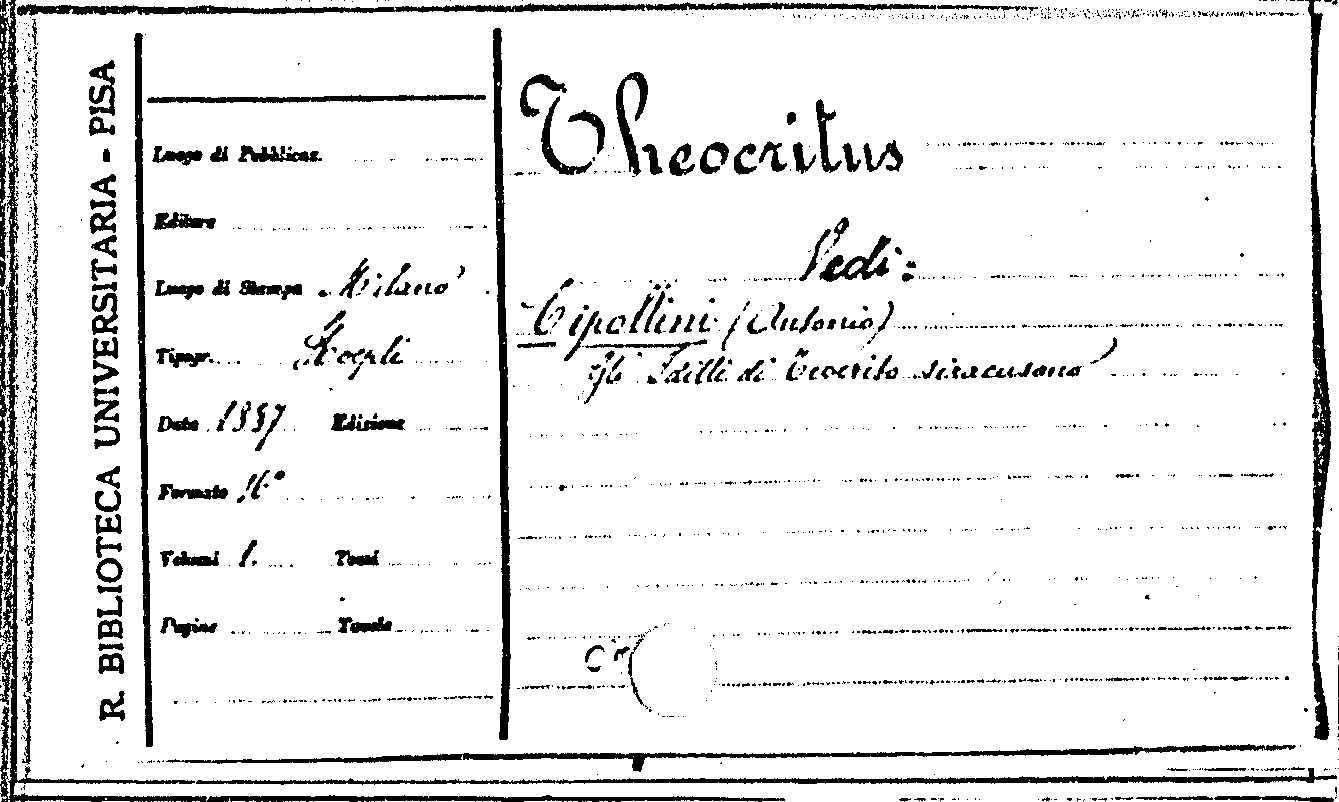 R. BIBLIOTECA UNIVERSITARIA - PISA
Luogo di Pubblicaz.
Editore
Luogo di Stampa Milano
Tipogr. Hoepli
Data 1887 Edizione
Formato 16°
Volumi 1. Tomi
Pagine Tavole
Theocritus
Vedi:
Cipollini (Antonio)
Gli Idilli di Teocrito siracusano